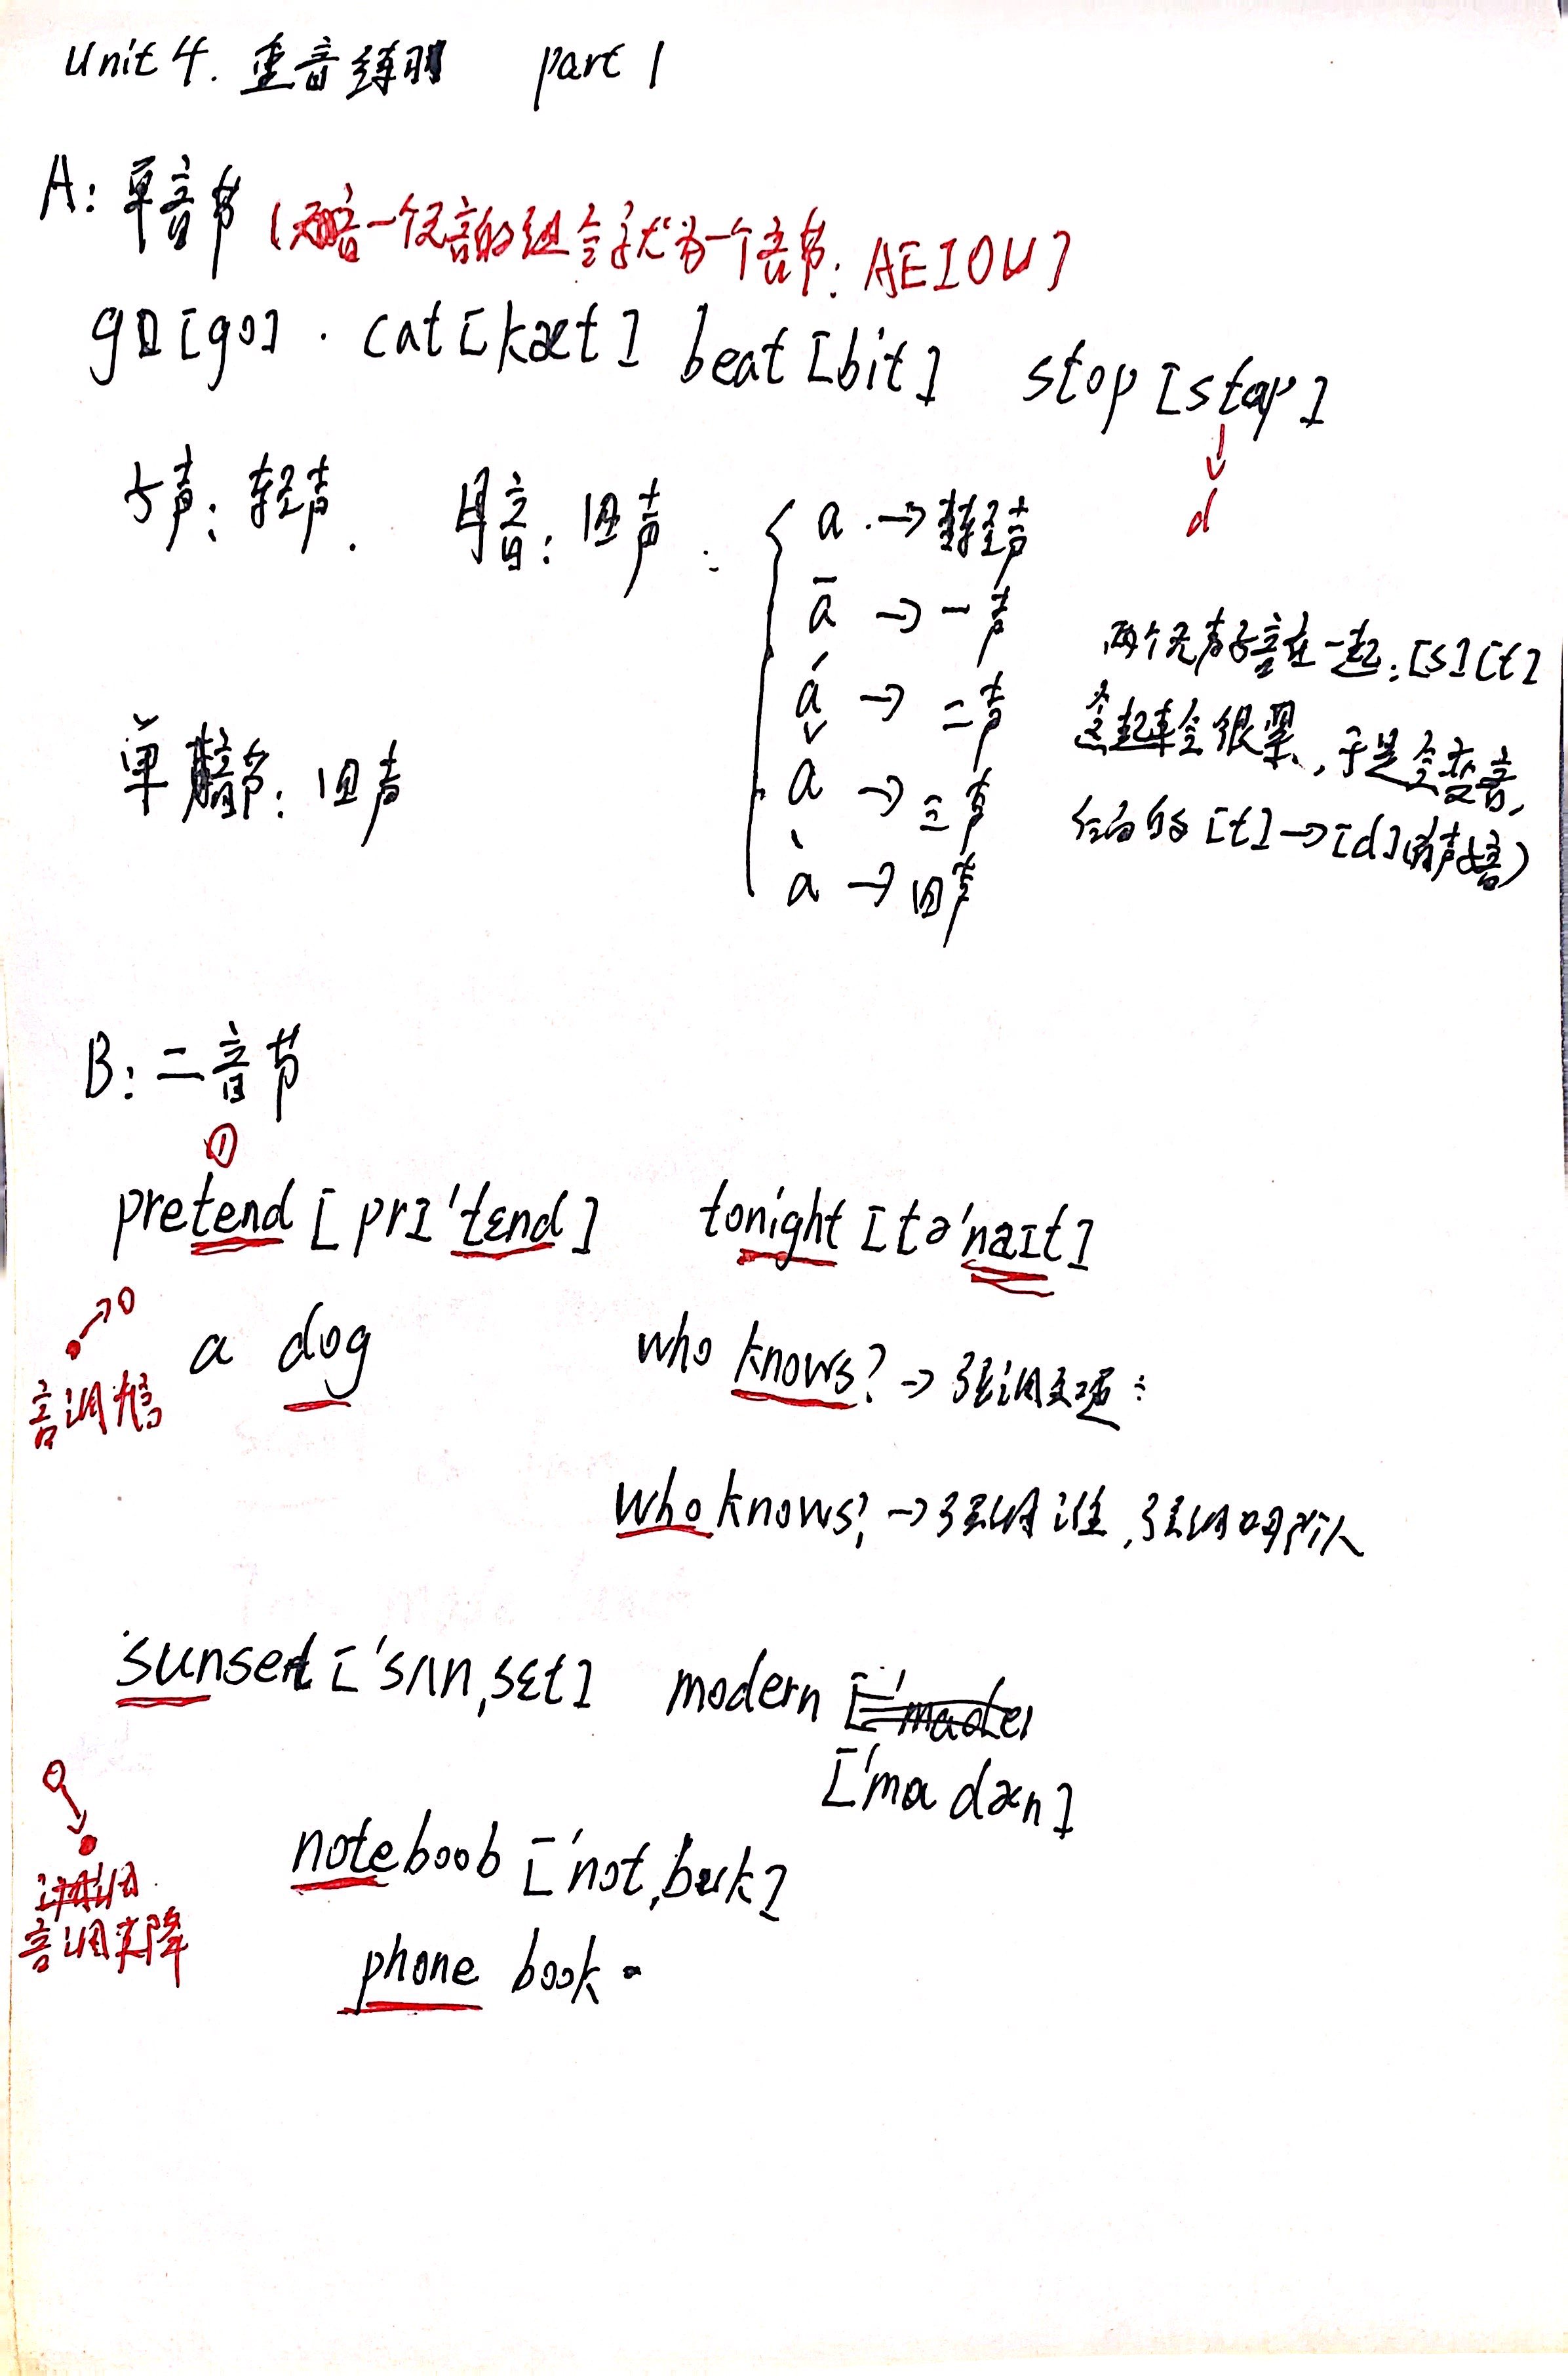 Unit 4. 重音练习 part 1
A: 单音节 (一个元音的组合就为一个音节: AEIOU)
go [go] · cat [kæt] beat [bit] stop [stɑp]
↓
d
5声: 轻声. 母音: 四声:
a → 轻声
ā → 一声
á → 二声
ǎ → 三声
à → 四声
单音节: 四声
两个无声子音在一起: [s] [t]
会很累, 于是会变音,
[t] → [d] (有声子音)
B: 二音节
①
pretend [prɪ'tɛnd] tonight [tə'naɪt]
音调高
a dog who knows? → 强调主题:
who knows? → 强调谁, 强调哪个人
sunset ['sʌn,sɛt] modern
['mɑ dɚn]
noteboob ['not,bʊk]
音调突降
phone book